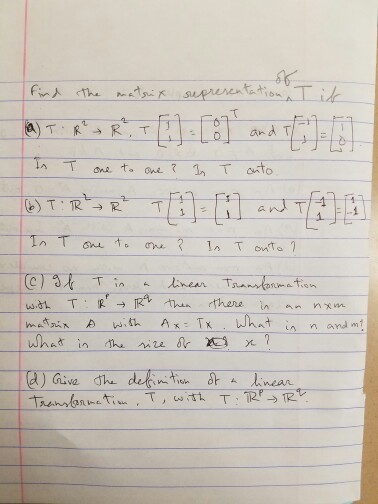 Find the matrix representation of T if
(a) T: ℝ² → ℝ², T [1 1] = [0 0]ᵀ and T [-1 1] = [1 0]
Is T one to one? Is T onto
(b) T: ℝ² → ℝ² T [1 1] = [1 1] and T [-1 1] = [1 -1]
Is T one to one? Is T onto?
(c) If T is a linear Transformation
with T: ℝᵖ → ℝq then there is an nxm
matrix A with Ax = Tx. What is n and m?
What is the size of x?
(d) Give the definition of a linear
Transformation, T, with T: ℝᵖ → ℝq.